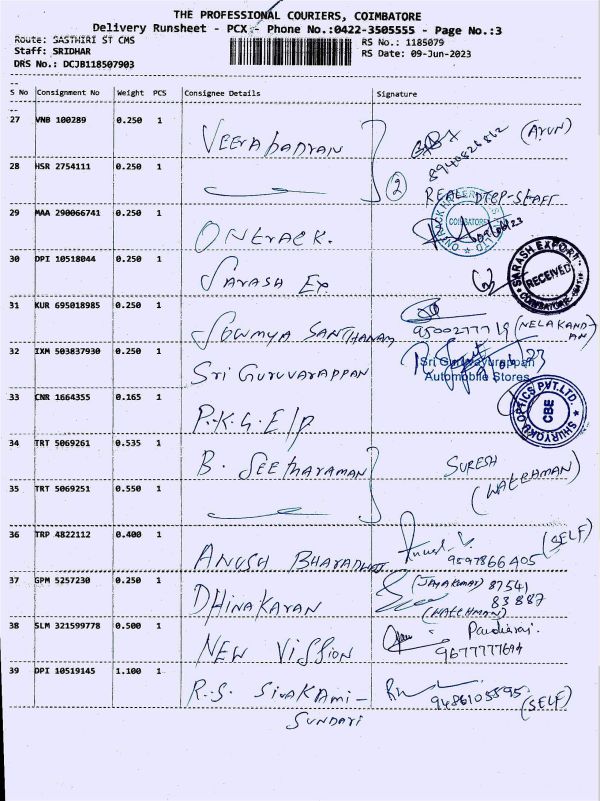 THE PROFESSIONAL COURIERS, COIMBATORE
Delivery Runsheet - PCX - Phone No.:0422-3505555 - Page No.:3
Route: SASTHIRI ST CMS
RS No.: 1185079
Staff: SRIDHAR
RS Date: 09-Jun-2023
DRS No.: DCJB118507903
S No Consignment No Weight PCS Consignee Details Signature
27 VNB 100289 0.250 1 VEERABADRAN (ARUN)
28 HSR 2754111 0.250 1 2 REAL DTCP-STAFF
29 MAA 290066741 0.250 1 ONTRACK. COIMBATORE
30 DPI 10518044 0.250 1 SARASH EX. SARASH EXPORT RECEIVED
31 KUR 695018985 0.250 1 SOWMYA SANTHANAM 9500277719 (NELAKANDAN)
32 IXM 503837930 0.250 1 SRI GURUVARAPPAN Sri Guruvayurappan
Automobile Stores
33 CNR 1664355 0.165 1 P.K.G.E/P SHURYOKU OPTICS PVT.LTD. CBE
34 TRT 5069261 0.535 1 B. SEETHARAMAN SURESH
(WATCHMAN)
35 TRT 5069251 0.550 1
36 TRP 4822112 0.400 1 ANUSH BHARADWAJ 9597866405 (SELF)
37 GPM 5257230 0.250 1 DHINAKARAN (JAYAKUMAR) 87541
83887
(WATCHMAN)
38 SLM 321599778 0.500 1 NEW VISSION Pandiaraj.
9677777694
39 DPI 10519145 1.100 1 R.S. SIVAKAMI-
SUNDARI 9486105895 (SELF)